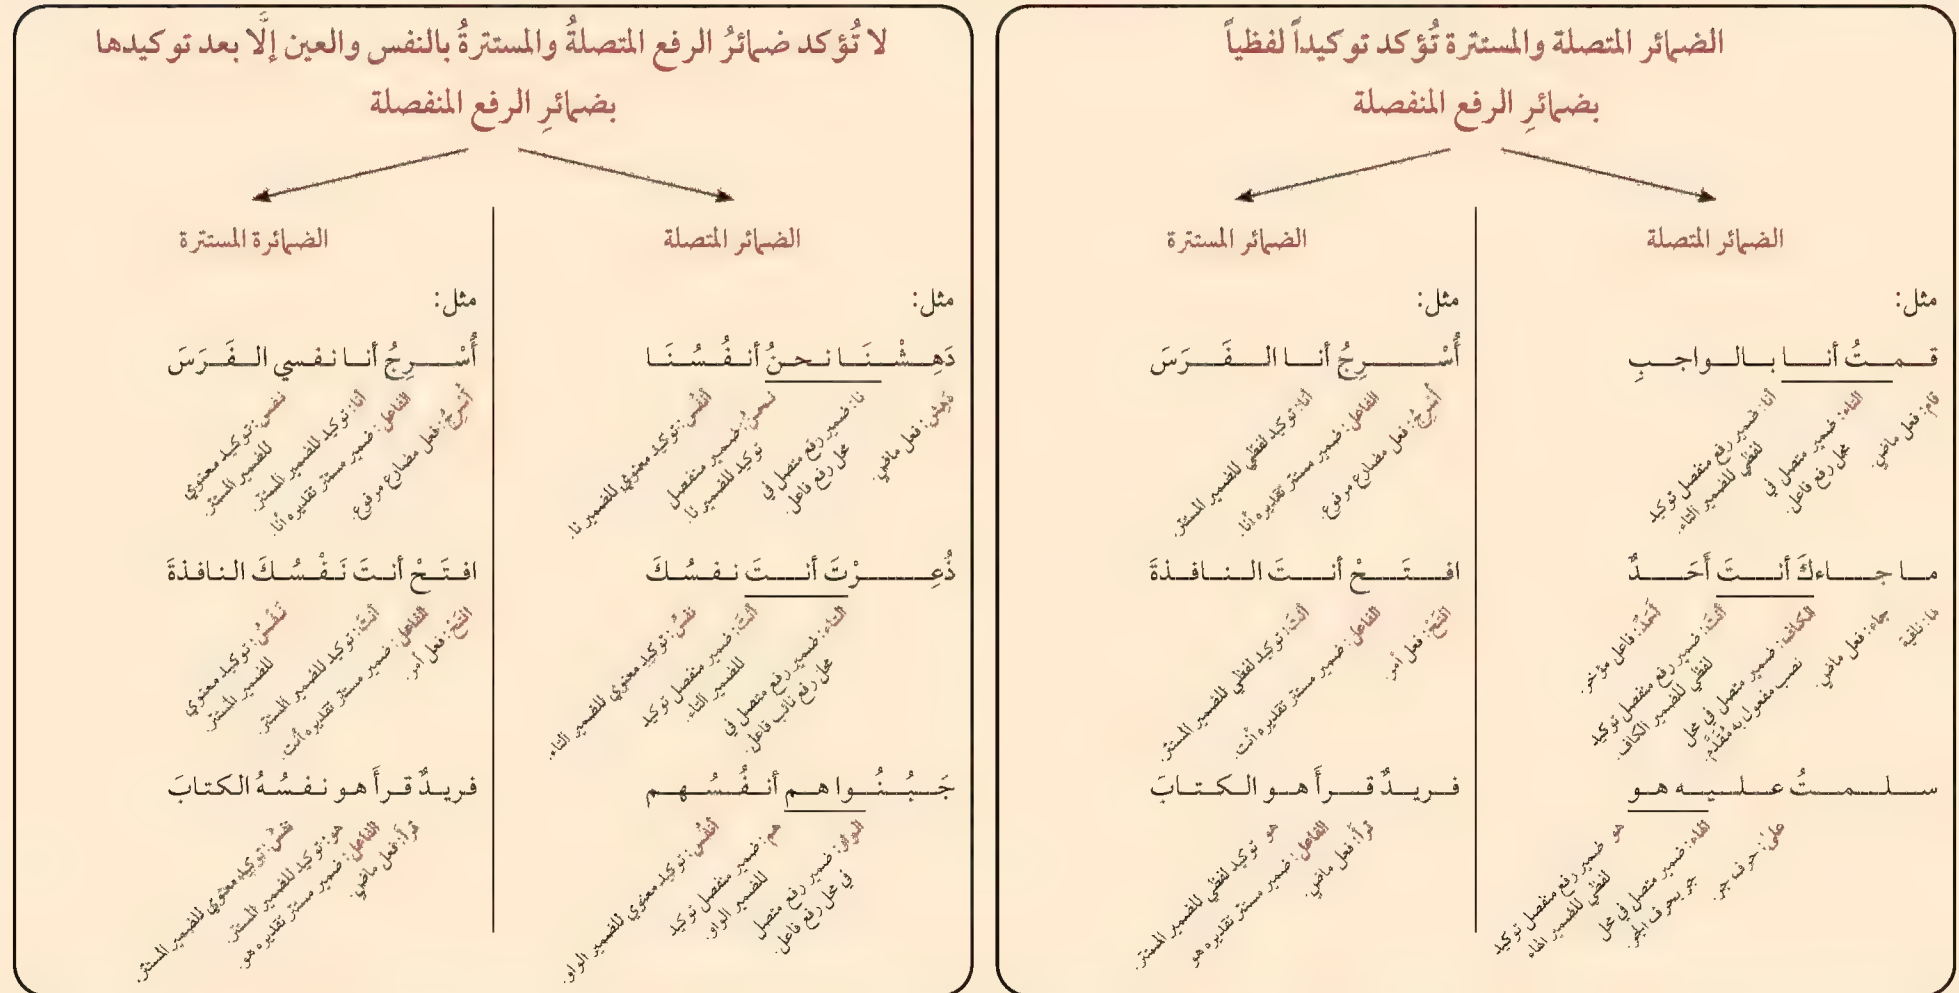 الضمائر المتصلة والمستترة تُؤكد توكيداً لفظياً
بضمائرِ الرفع المنفصلة
الضمائر المتصلة
مثل:
قمتُ أنا بالواجبِ
قام: فعل ماضي.
التاء: ضمير متصل في
محل رفع فاعل.
أنا: ضمير رفع منفصل توكيد
لفظي للضمير التاء.
ما جاءكَ أنتَ أَحَدٌ
ما: نافية
جاء: فعل ماضي.
الكاف: ضمير متصل في محل
نصب مفعول به مُقدَّم.
أنتَ: ضمير رفع منفصل توكيد
لفظي للضمير الكاف.
أَحَدٌ: فاعل مؤخر.
سلمتُ عليه هو
على: حرف جر.
الهاء: ضمير متصل في محل
جر بحرف الجر.
هو ضمير رفع منفصل توكيد
لفظي للضمير الهاء
الضمائر المستترة
مثل:
أُسْرِجُ أنا الفَرَسَ
أُسْرِجُ: فعل مضارع مرفوع.
الفاعل: ضمير مستتر تقديره أنا.
أنا: توكيد لفظي للضمير المستتر.
افتَحْ أنتَ النافذةَ
افتَحْ: فعل أمر.
الفاعل: ضمير مستتر تقديره أنت.
أنتَ: توكيد لفظي للضمير المستتر.
فريدٌ قرأَ هو الكتابَ
قرأَ: فعل ماضي.
الفاعل: ضمير مستتر تقديره هو
هو توكيد لفظي للضمير المستتر.
لا تُؤكد ضمائرُ الرفع المتصلةُ والمستترةُ بالنفس والعين إلَّا بعد توكيدها
بضمائرِ الرفع المنفصلة
الضمائر المتصلة
مثل:
دَهِشْنَا نحنُ أنفُسُنَا
دَهِش: فعل ماضي.
نا: ضمير رفع متصل في
محل رفع فاعل.
نحنُ: ضمير منفصل
توكيد للضمير نا.
أنفُس: توكيد معنوي للضمير نا.
ذُعِرْتَ أنتَ نفسُكَ
التاء: ضمير رفع متصل في
محل رفع نائب فاعل.
أنتَ: ضمير منفصل توكيد
للضمير التاء.
نفسُ: توكيد معنوي للضمير التاء.
جَبُنُوا هم أنفُسُهم
الواو: ضمير رفع متصل
في محل رفع فاعل.
هم: ضمير منفصل توكيد
للضمير الواو.
أنفُس: توكيد معنوي للضمير الواو.
الضمائرة المستترة
مثل:
أُسْرِجُ أنا نفسي الفَرَسَ
أُسْرِجُ: فعل مضارع مرفوع.
الفاعل: ضمير مستتر تقديره أنا.
أنا: توكيد للضمير المستتر.
نفس: توكيد معنوي
للضمير المستتر.
افتَحْ أنتَ نَفْسُكَ النافذةَ
افتَحْ: فعل أمر.
الفاعل: ضمير مستتر تقديره أنت.
أنتَ: توكيد للضمير المستتر.
نَفْسُ: توكيد معنوي
للضمير المستتر.
فريدٌ قرأَ هو نفسُهُ الكتابَ
قرأَ: فعل ماضي.
الفاعل: ضمير مستتر تقديره هو.
هو: توكيد للضمير المستتر.
نفسُ: توكيد معنوي للضمير المستتر.